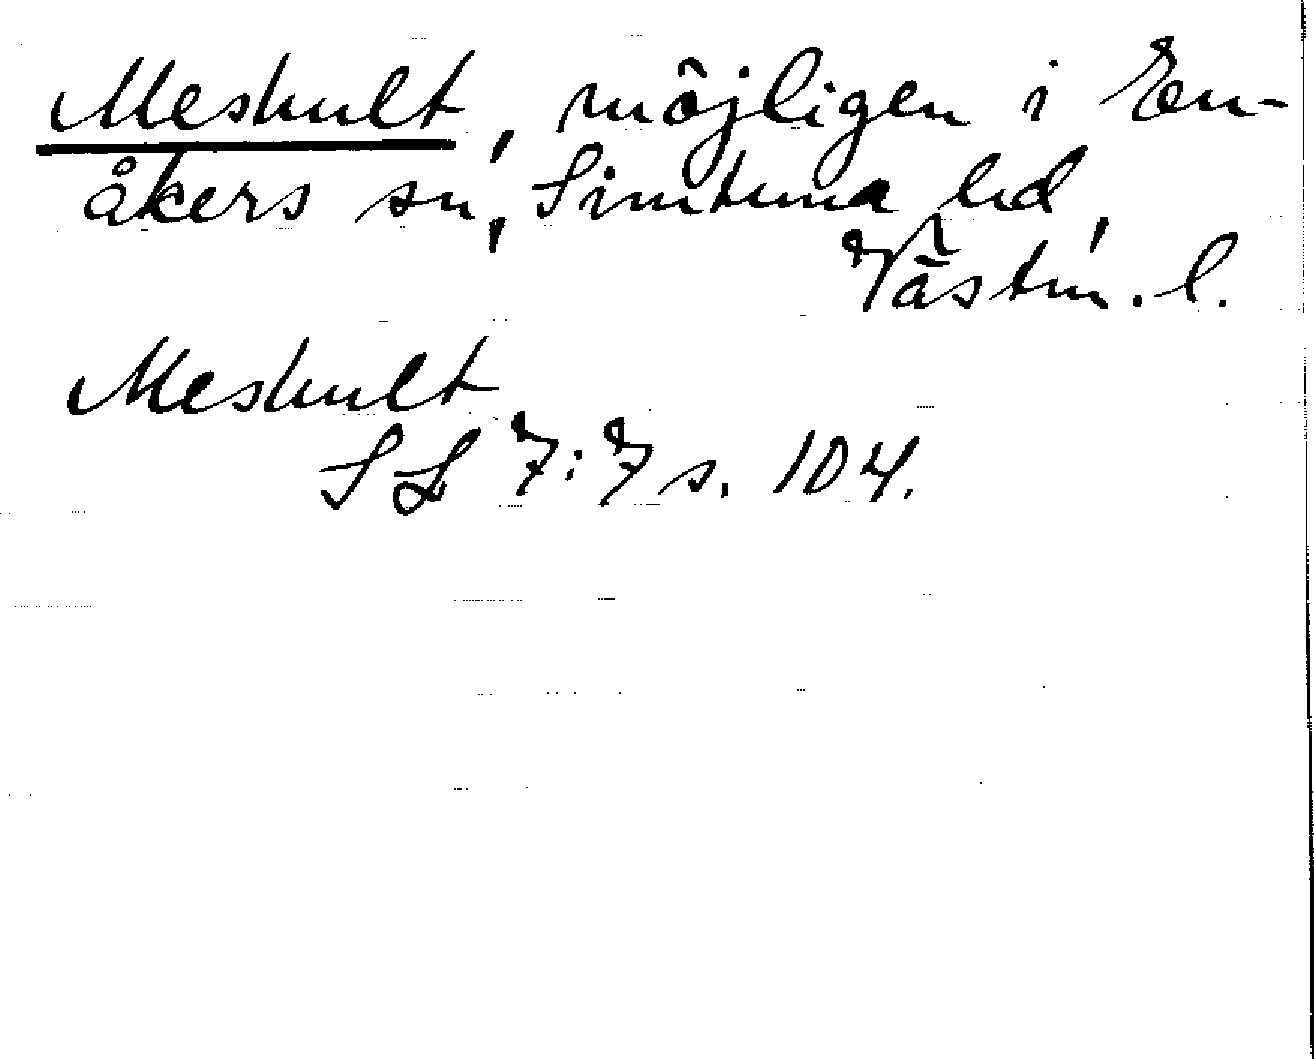 Meshult, möjligen i En-
åkers sn, Simtuna hd,
Västm. l.
Meshult
SL 7:7 s. 104.